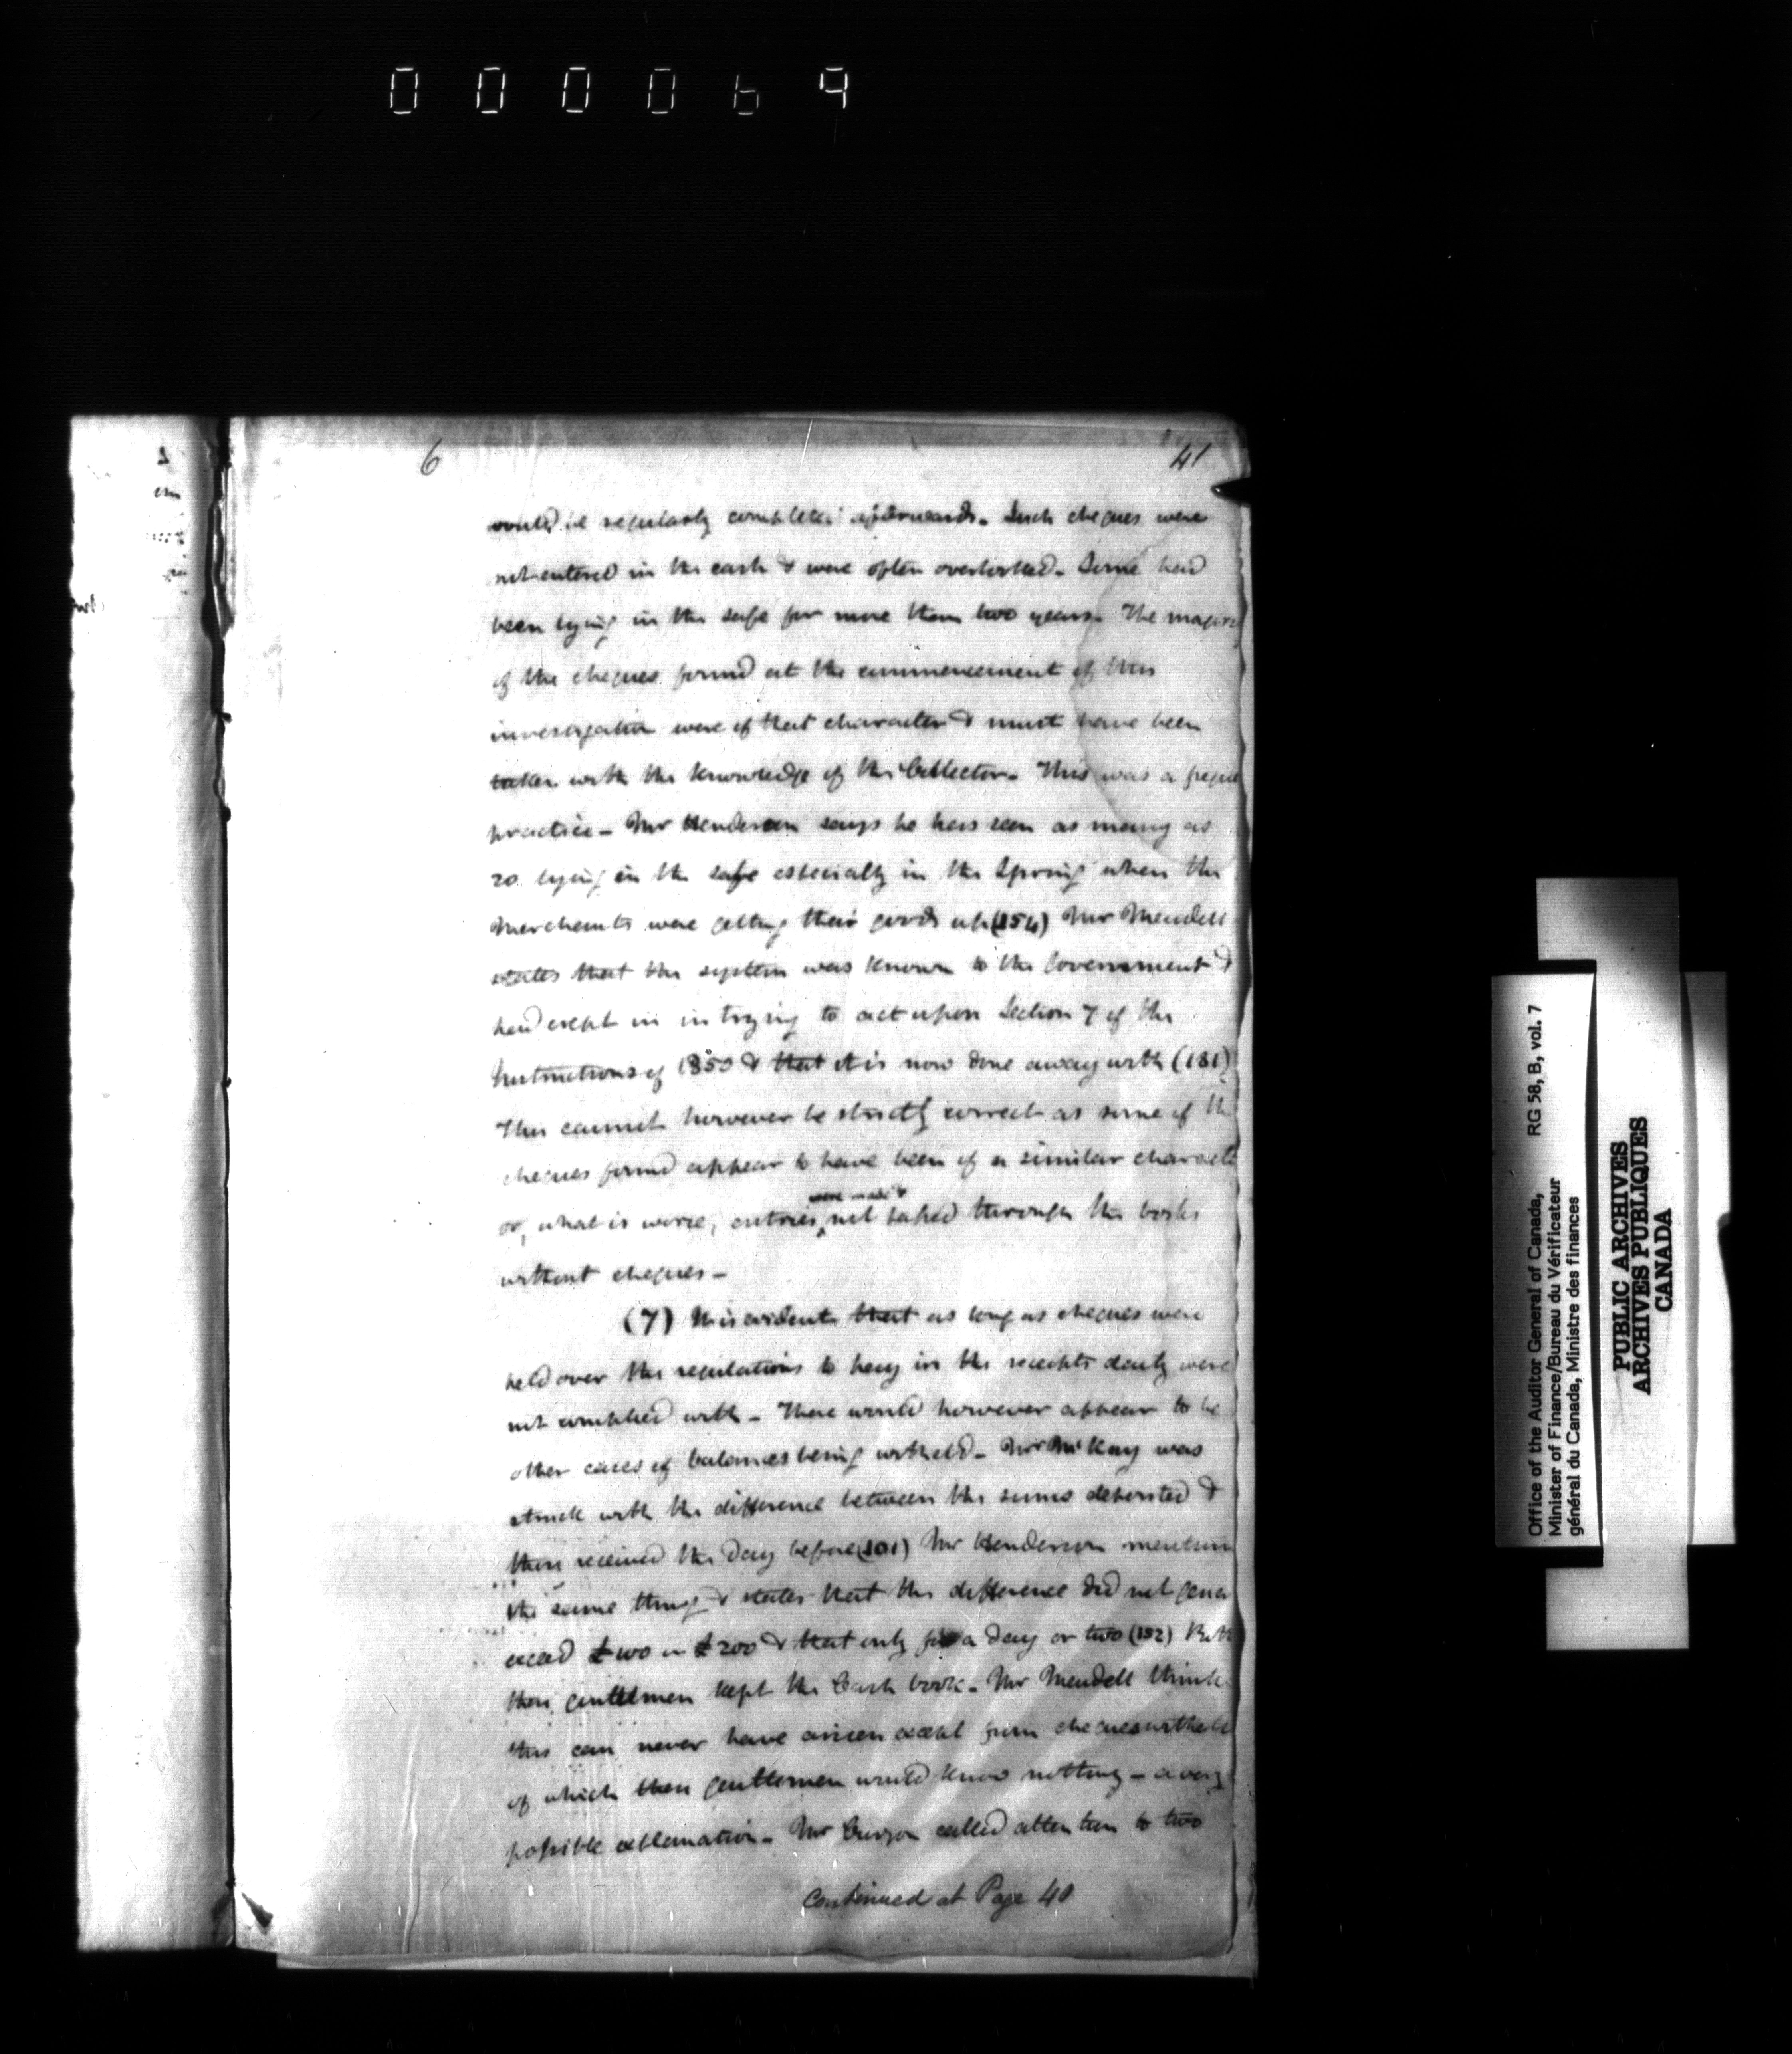 000069
6
41
would be regularly completed afterwards. Such cheques were
not entered in the cash & were often overlooked. Some had
been lying in the safe for more than two years. The majori
of the cheques found at the commencement of this
investigation were of that character & must have been
taken with the knowledge of the Collector. This was a freque
practice - Mr Henderson says he has seen as many as
20 lying in the safe especially in the Spring when the
Merchants were getting their goods up (154) Mr Mendell
states that the system was known to the Government &
had crept in in trying to act upon Section 7 of the
Instructions of 1850 & that it is now done away with (181)
This cannot however be strictly correct as some of th
cheques found appear to have been of a similar characte
were made &
or, what is worse, entries not passed through the books
without cheques -
(7) It is evident that as long as cheques were
held over the regulations to pay in the receipts daily were
not complied with - There would however appear to be
other cases of balances being witheld - Mr McKay was
struck with the difference between the sums deposited &
those received the day before (101) Mr Henderson mention
the same thing & states that the difference did not gener
exceed £100 or £200 & that only for a day or two (152) Both
these gentlemen kept the Cash book - Mr Mendell think
this can never have arisen except from cheques withel
of which these gentlemen would know nothing - a very
possible explanation - Mr called attention to two
Continued at Page 40
Office of the Auditor General of Canada, RG 58, B, vol. 7
Minister of Finance/Bureau du Vérificateur
général du Canada, Ministre des finances
PUBLIC ARCHIVES
ARCHIVES PUBLIQUES
CANADA